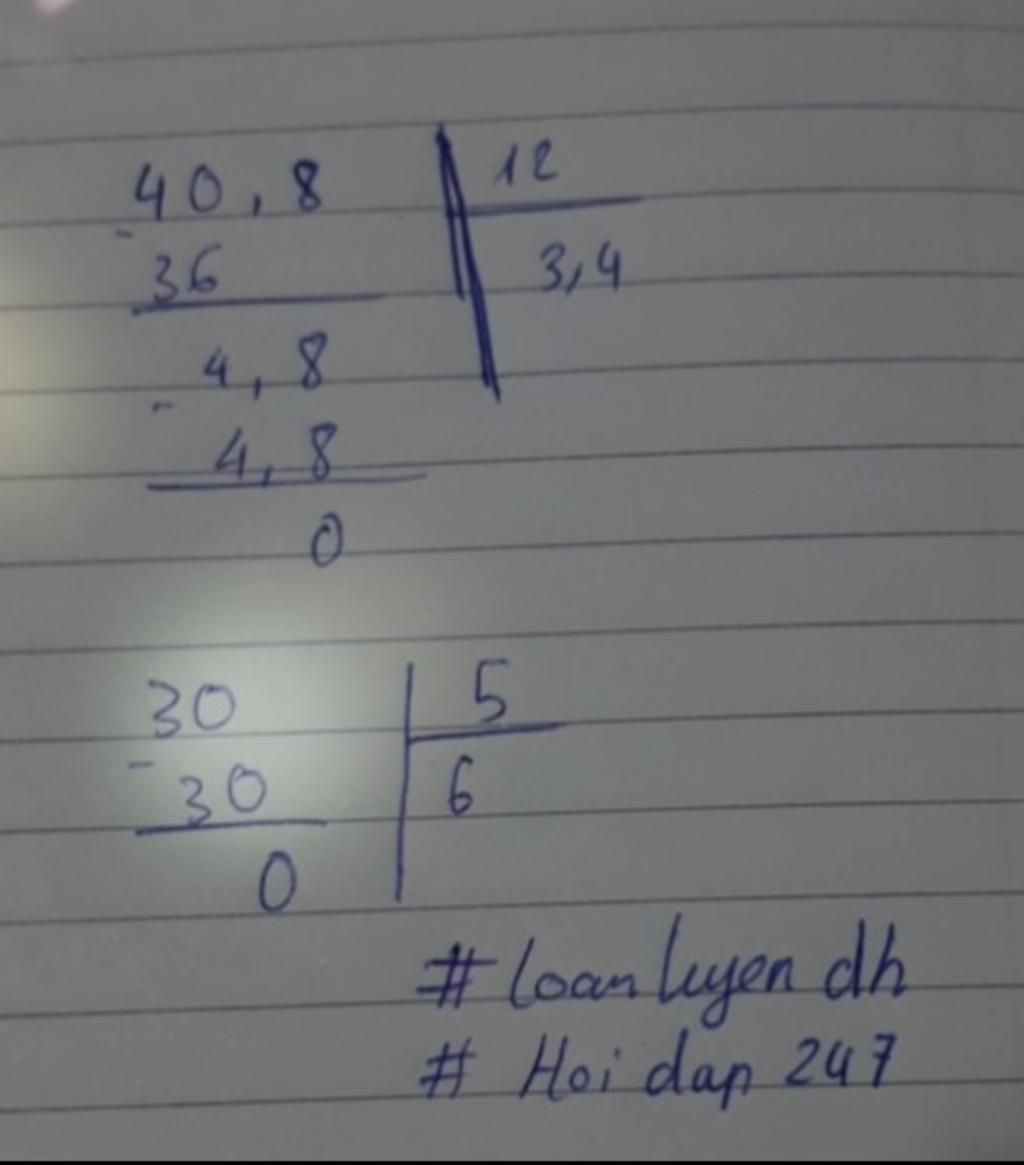 40,8 12
- 36 3,4
4,8
- 4,8
0
30 5
- 30 6
0
# loanluyen dh
# Hoi dap 247